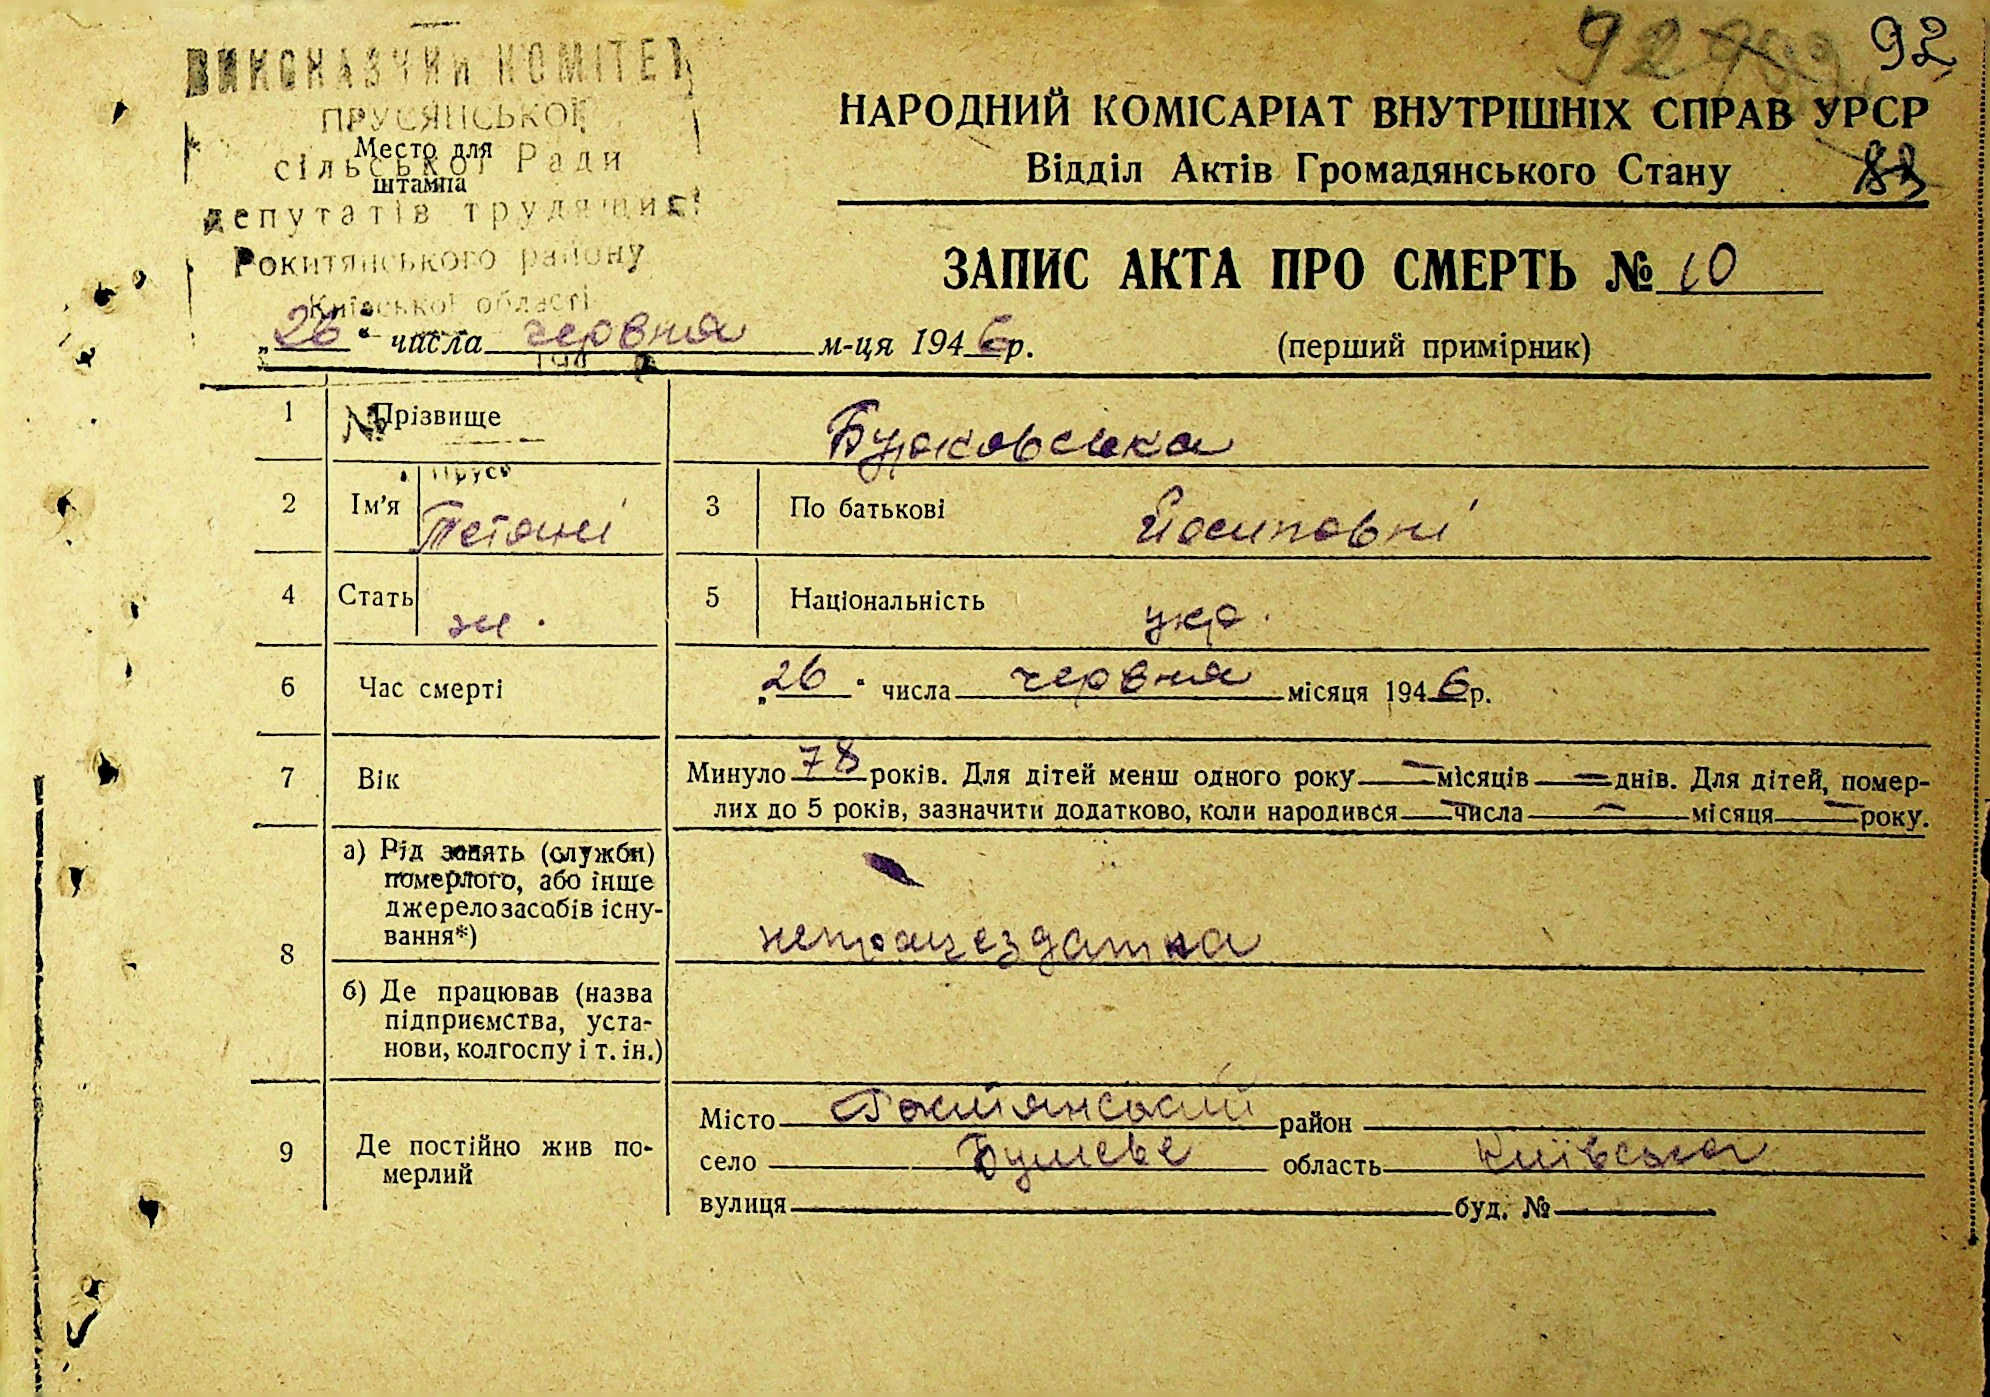 92 92
ВИКОНАВЧИЙ КОМІТЕТ
ПРУСЯНСЬКОЇ
Место для
сільської Ради
штампа
депутатів трудящих
Рокитянського району
Київської області
НАРОДНИЙ КОМІСАРІАТ ВНУТРІШНІХ СПРАВ УРСР
Відділ Актів Громадянського Стану
ЗАПИС АКТА ПРО СМЕРТЬ № 10
„26“ числа червня м-ця 1946 р.
(перший примірник)
194
1 Прізвище Бурковська
№
Прус
2 Ім'я Тетяні 3 По батькові Йосиповні
4 Стать ж. 5 Національність укр.
6 Час смерті „26“ числа червня місяця 1946 р.
7 Вік Минуло 78 років. Для дітей менш одного року — місяців — днів. Для дітей, помер-
лих до 5 років, зазначити додатково, коли народився — числа — місяця — року.
8 а) Рід занять (служби)
померлого, або інше
джерело засобів існу-
вання*) непрацездатна
б) Де працював (назва
підприємства, уста-
нови, колгоспу і т. ін.)
9 Де постійно жив по-
мерлий
Місто Рокитянський район
село Бушеве область Київська
вулиця буд. №